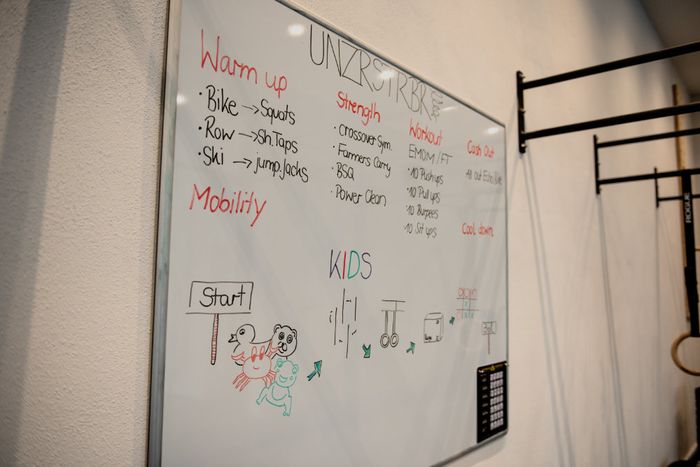 UNZRSTRBR
Warm up
· Bike → Squats
· Row → Sh.Taps
· Ski → jump.Jacks
Mobility
Strength
· Crossover Sym.
· Farmers Carry
· BSQ
· Power Clean
Workout
EMOM / FT
· 10 Push ups
· 10 Pull ups
· 10 Burpees
· 10 Sit ups
Cash Out
out Echo Bike
Cool down
KIDS
Start
ROGUE